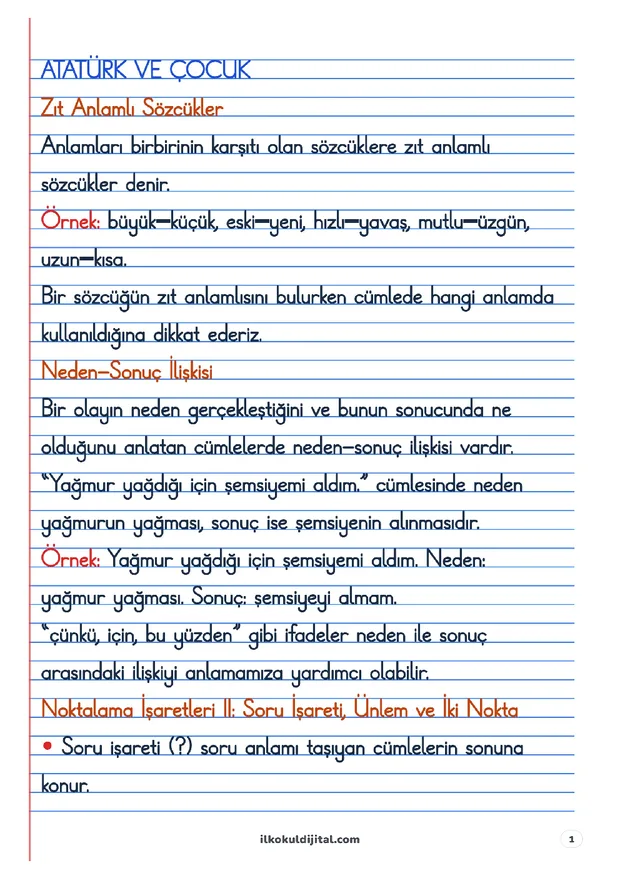 ATATÜRK VE ÇOCUK
Zıt Anlamlı Sözcükler
Anlamları birbirinin karşıtı olan sözcüklere zıt anlamlı
sözcükler denir.
Örnek: büyük—küçük, eski—yeni, hızlı—yavaş, mutlu—üzgün,
uzun—kısa.
Bir sözcüğün zıt anlamlısını bulurken cümlede hangi anlamda
kullanıldığına dikkat ederiz.
Neden–Sonuç İlişkisi
Bir olayın neden gerçekleştiğini ve bunun sonucunda ne
olduğunu anlatan cümlelerde neden–sonuç ilişkisi vardır.
“Yağmur yağdığı için şemsiyemi aldım.” cümlesinde neden
yağmurun yağması, sonuç ise şemsiyenin alınmasıdır.
Örnek: Yağmur yağdığı için şemsiyemi aldım. Neden:
yağmur yağması. Sonuç: şemsiyeyi almam.
“çünkü, için, bu yüzden” gibi ifadeler neden ile sonuç
arasındaki ilişkiyi anlamamıza yardımcı olabilir.
Noktalama İşaretleri II: Soru İşareti, Ünlem ve İki Nokta
• Soru işareti (?) soru anlamı taşıyan cümlelerin sonuna
konur.
ilkokuldijital.com
1